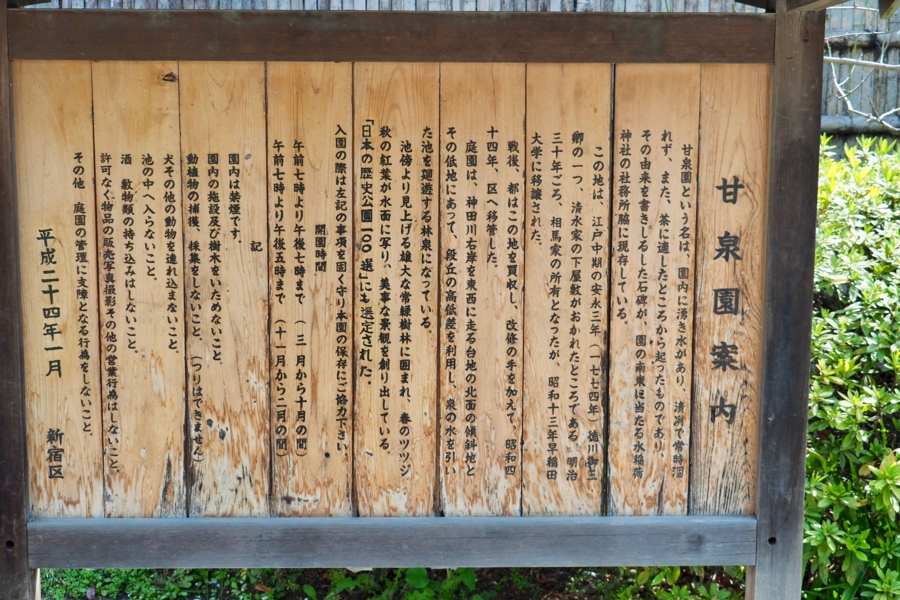 甘泉園案内
甘泉園という名は、園内に湧き水があり、清冽で常時涸
れず、また、茶に適したところから起ったものであり、
その由来を書きしるした石碑が、園の南東に当たる水稲荷
神社の社務所脇に現存している。
この地は、江戸中期の安永三年（一七七四年）徳川御三
卿の一つ、清水家の下屋敷がおかれたところである。明治
三十年ごろ、相馬家の所有となったが、昭和十三年早稲田
大学に移譲された。
戦後、都はこの地を買収し、改修の手を加えて、昭和四
十四年、区へ移管した。
庭園は、神田川右岸を東西に走る台地の北面の傾斜地と
その低地にあって、段丘の高低差を利用し、泉の水を引い
た池を廻遊する林泉になっている。
池傍より見上げる雄大な常緑樹林に囲まれ、春のツツジ
秋の紅葉が水面に写り、美事な景観を創り出している。
「日本の歴史公園一〇〇選」にも選定された。
入園の際は左記の事項を固く守り本園の保存にご協力下さい
開園時間
午前七時より午後七時まで（三月から十月の間）
午前七時より午後五時まで（十一月から二月の間）
記
園内は禁煙です。
園内の施設及び樹木をいためないこと。
動植物の捕獲、採集をしないこと。（つりはできません）
犬その他の動物を連れ込まないこと。
池の中へ入らないこと。
酒、穀物類の持ち込みはしないこと。
許可なく物品の販売写真撮影その他の営業行為はしないこと。
その他 庭園の管理に支障となる行為をしないこと。
平成二十四年一月 新宿区